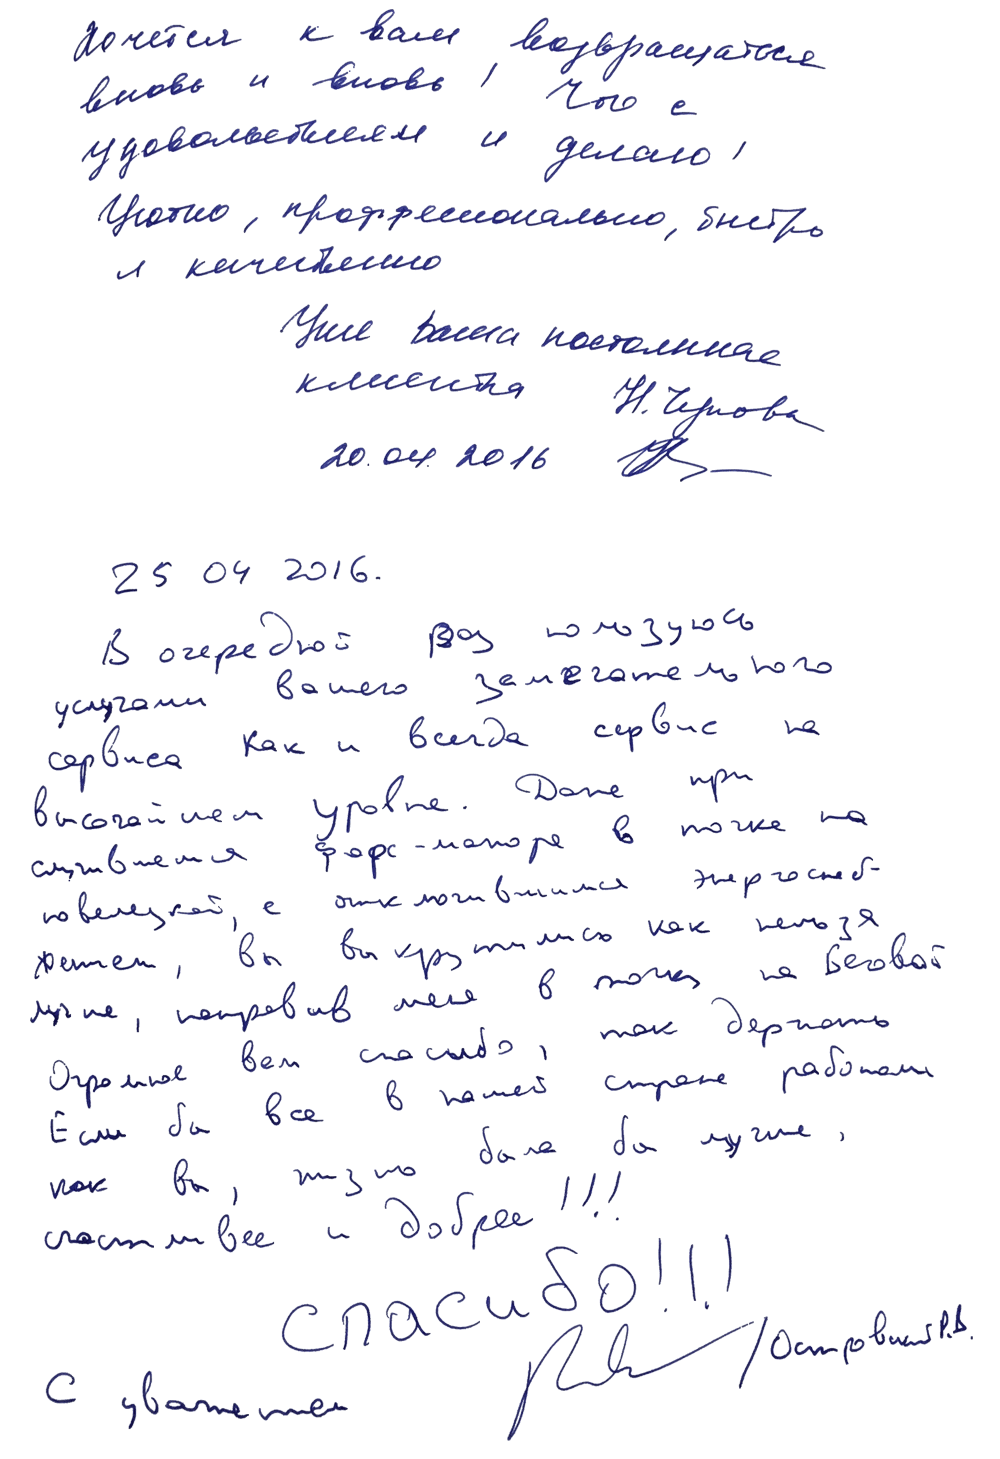 Хочется к вам возвращаться
вновь и вновь! Что с
удовольствием и делаю!
Уютно, профессионально, быстро
и качественно
Уже Ваша постоянная
клиентка Н. Чернова
20.04.2016
25 04 2016.
В очередной раз пользуюсь
услугами вашего замечательного
сервиса как и всегда сервис на
высочайшем уровне. Даже при
случившемся форс-мажоре в точке на
павелецкой, с отключившимся энергоснаб-
жением, вы выкрутились как нельзя
лучше, направив меня в точку на Беговой
Огромное вам спасибо, так держать
Если бы все в нашей стране работали
как вы, жизнь была бы лучше,
счастливее и добрее!!!
Спасибо!!!
С уважением /Островский Р.В.